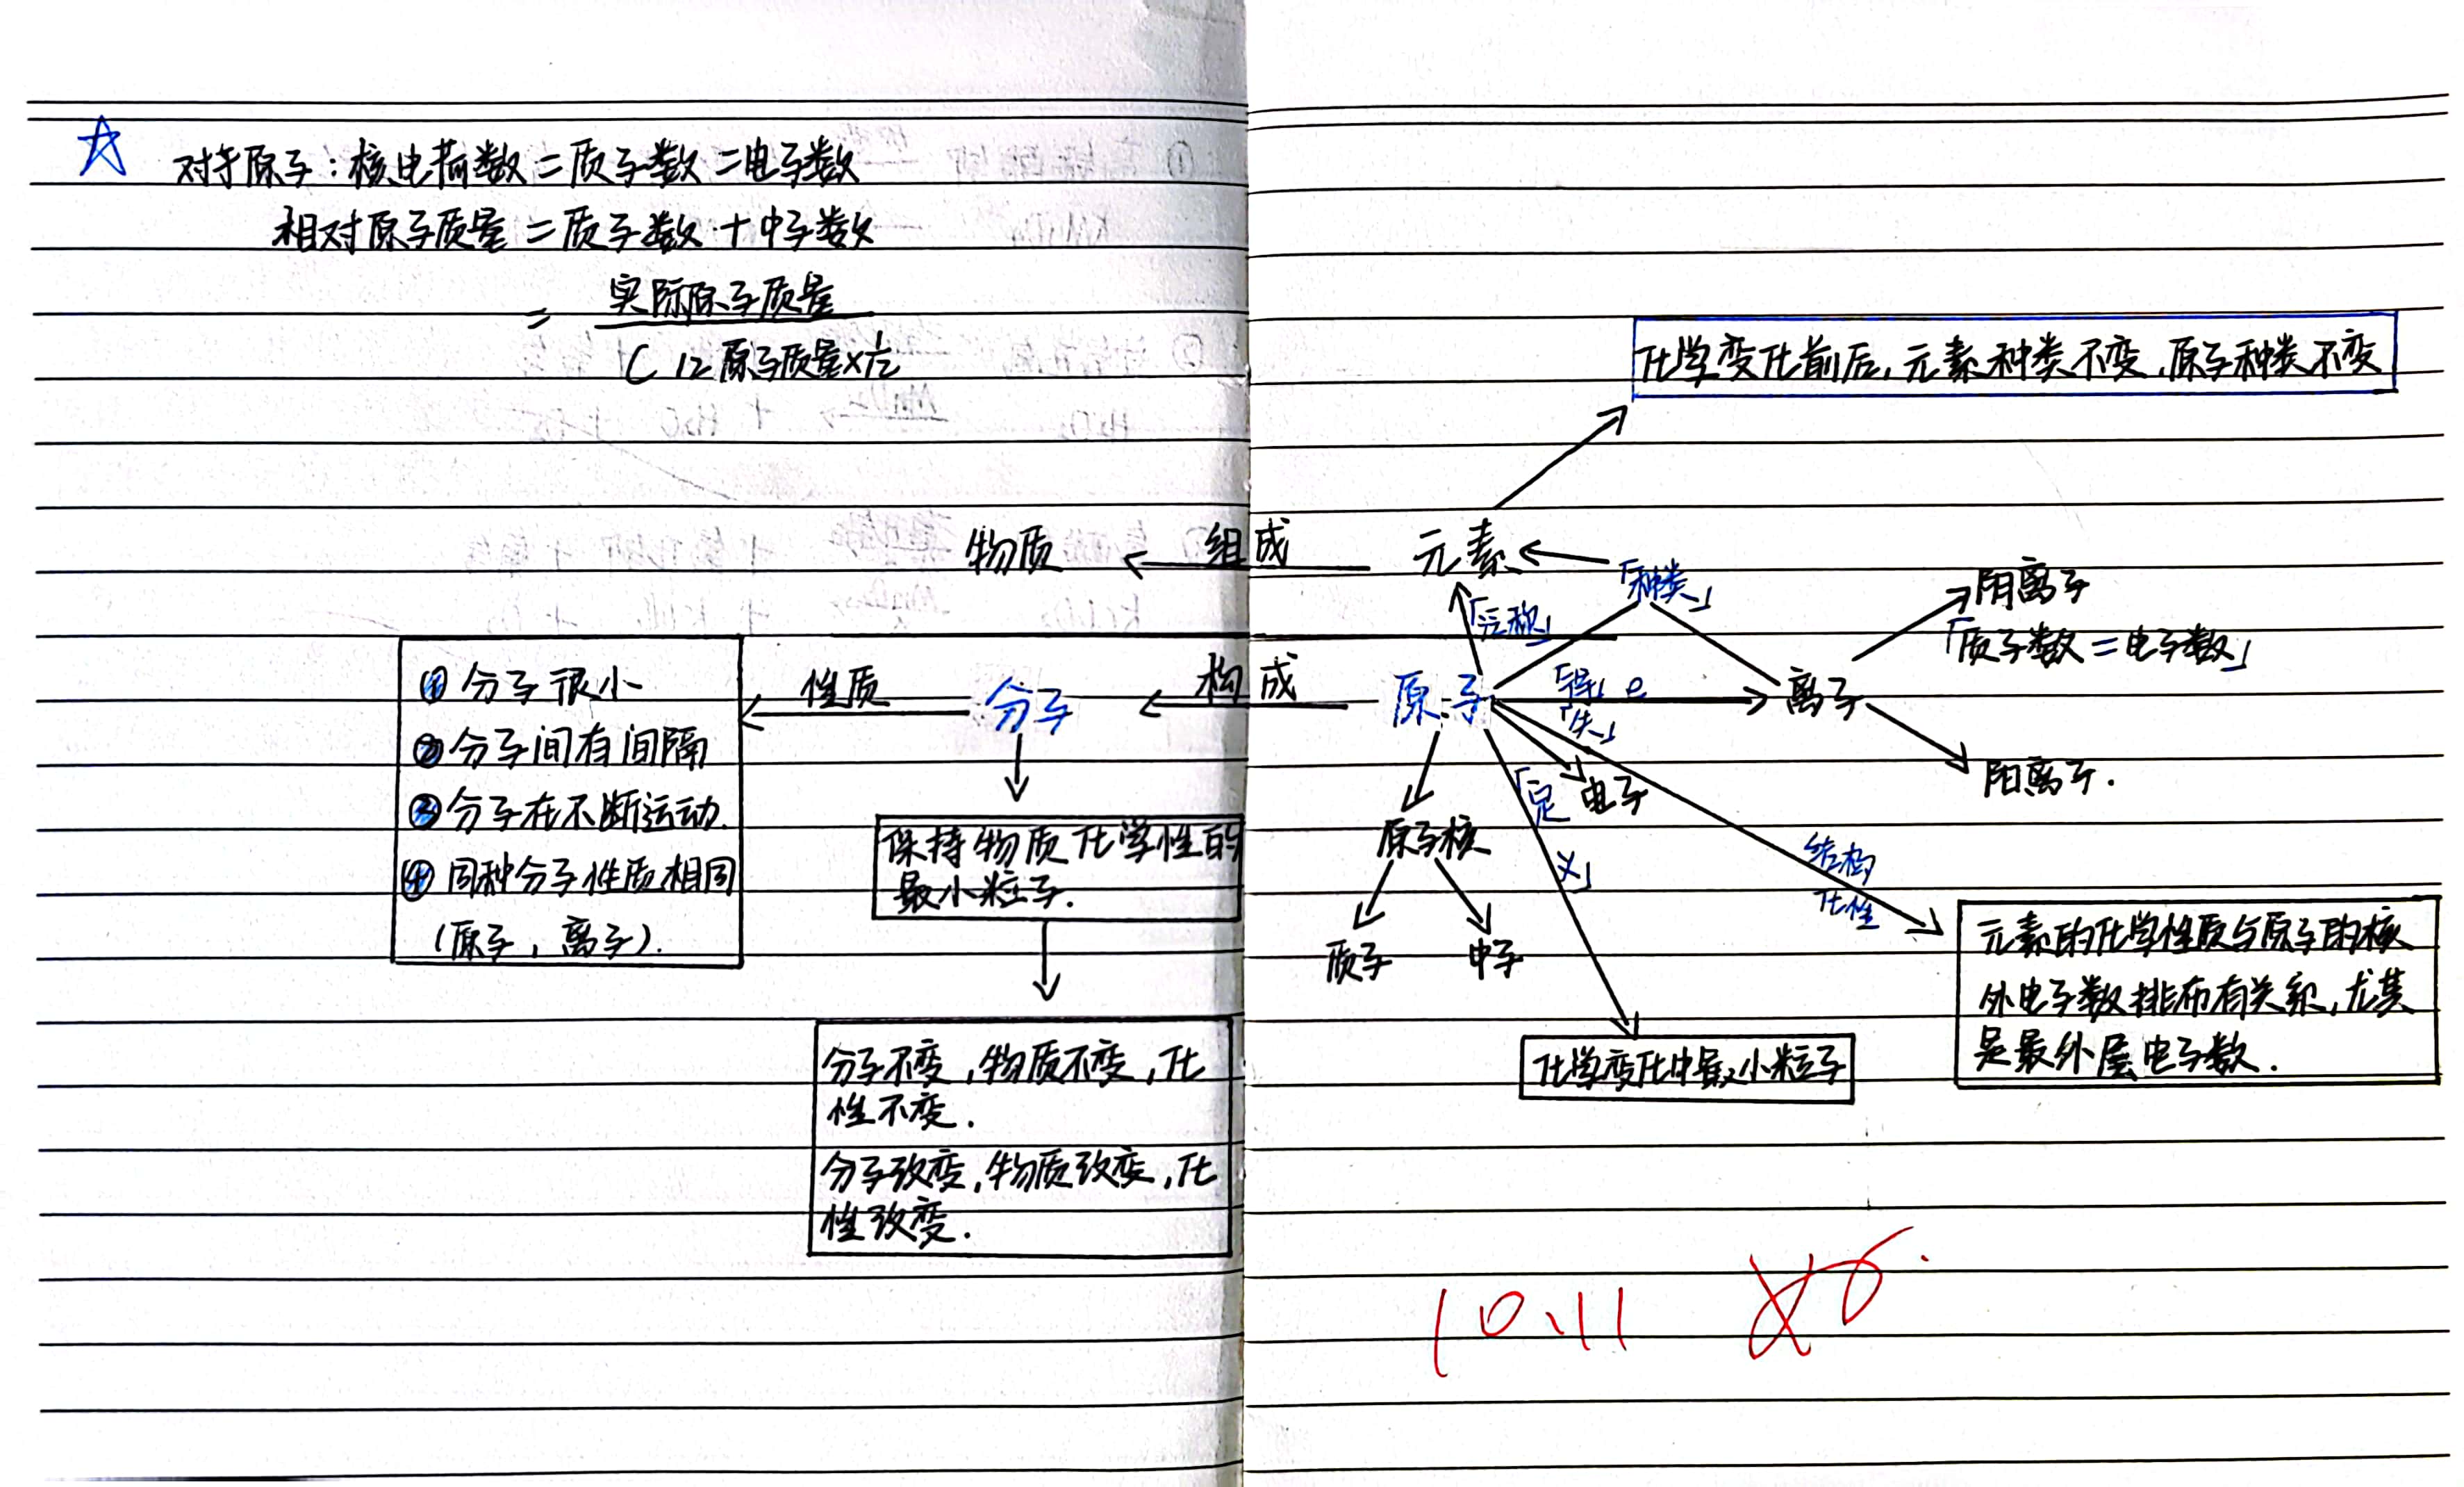 对于原子:核电荷数=质子数=电子数
相对原子质量=质子数+中子数
= 实际原子质量
C 12原子质量×1/12
化学变化前后,元素种类不变,原子种类不变
物质 组成 元素
「种类」
「总称」
阳离子
「质子数=电子数」
①分子很小
②分子间有间隔
③分子在不断运动.
④同种分子性质相同
(原子,离子).
性质 分子 构成 原子 「得」e 离子
「失」
阳离子.
「定 电子
义」
保持物质化学性的
最小粒子.
原子核
质子 中子
结构
化性
元素的化学性质与原子的核
外电子数排布有关系,尤其
是最外层电子数.
分子不变,物质不变,化
性不变.
分子改变,物质改变,化
性改变.
化学变化中最小粒子
10.11